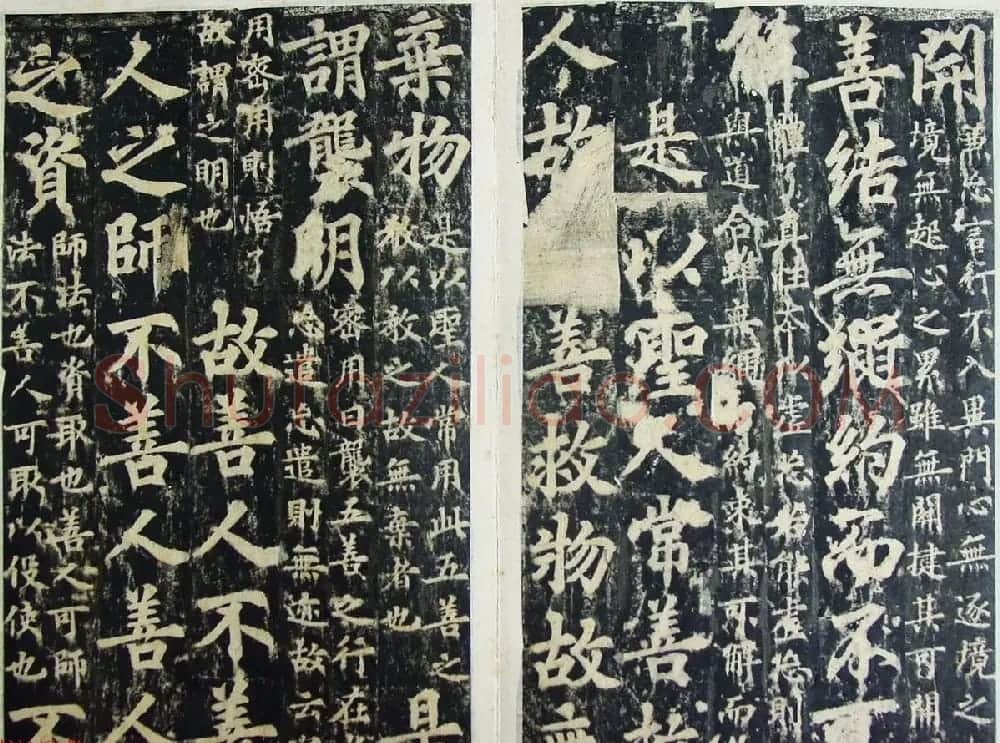 開
兼忘言行不入異門心無逐境之
境無起心之累雖無關揵其可開
善結無繩約而不可
解
體了真性本以虛忘若能虛忘則
與道合雖無繩約求其可解而
是以聖人常善救
人故善救物故無
棄物
是以聖人常用此五善之
教以教之故無棄者也
是
謂襲明
密用曰襲五善之行在
忘遣忘遣則無迹故云
用密用則悟了
故謂之明也
故善人不善
人之師不善人善人
之資
師法也資取也善人可師
法不善人可取以役使也
不
Shufaziliao.com